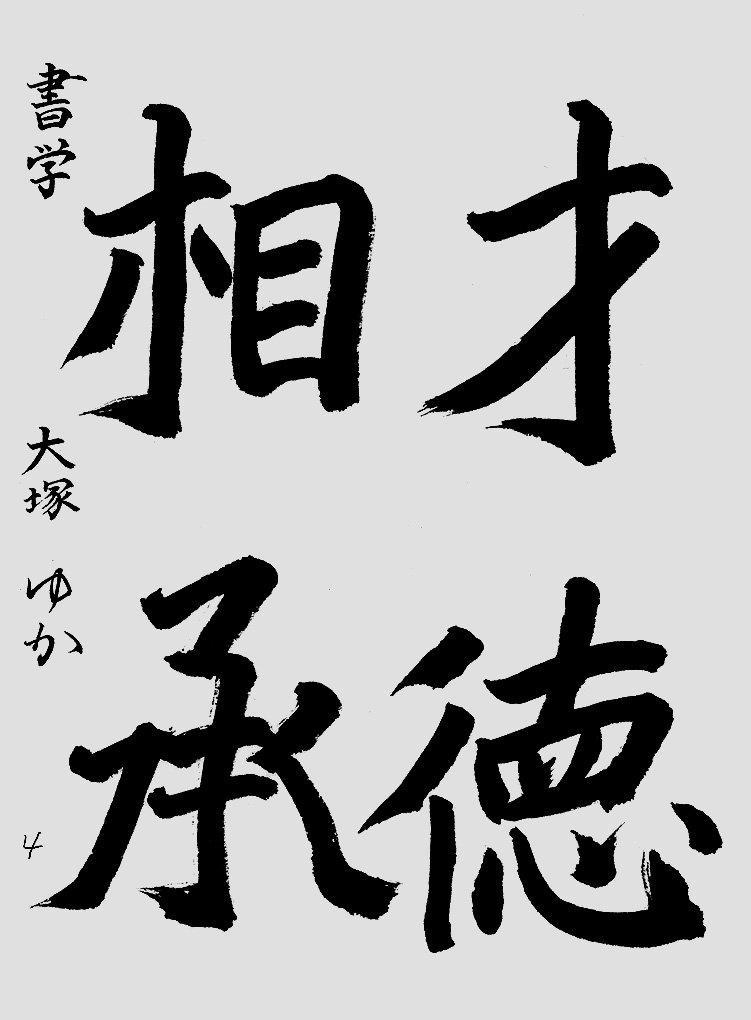 才徳
相承
書学 大塚ゆか
4